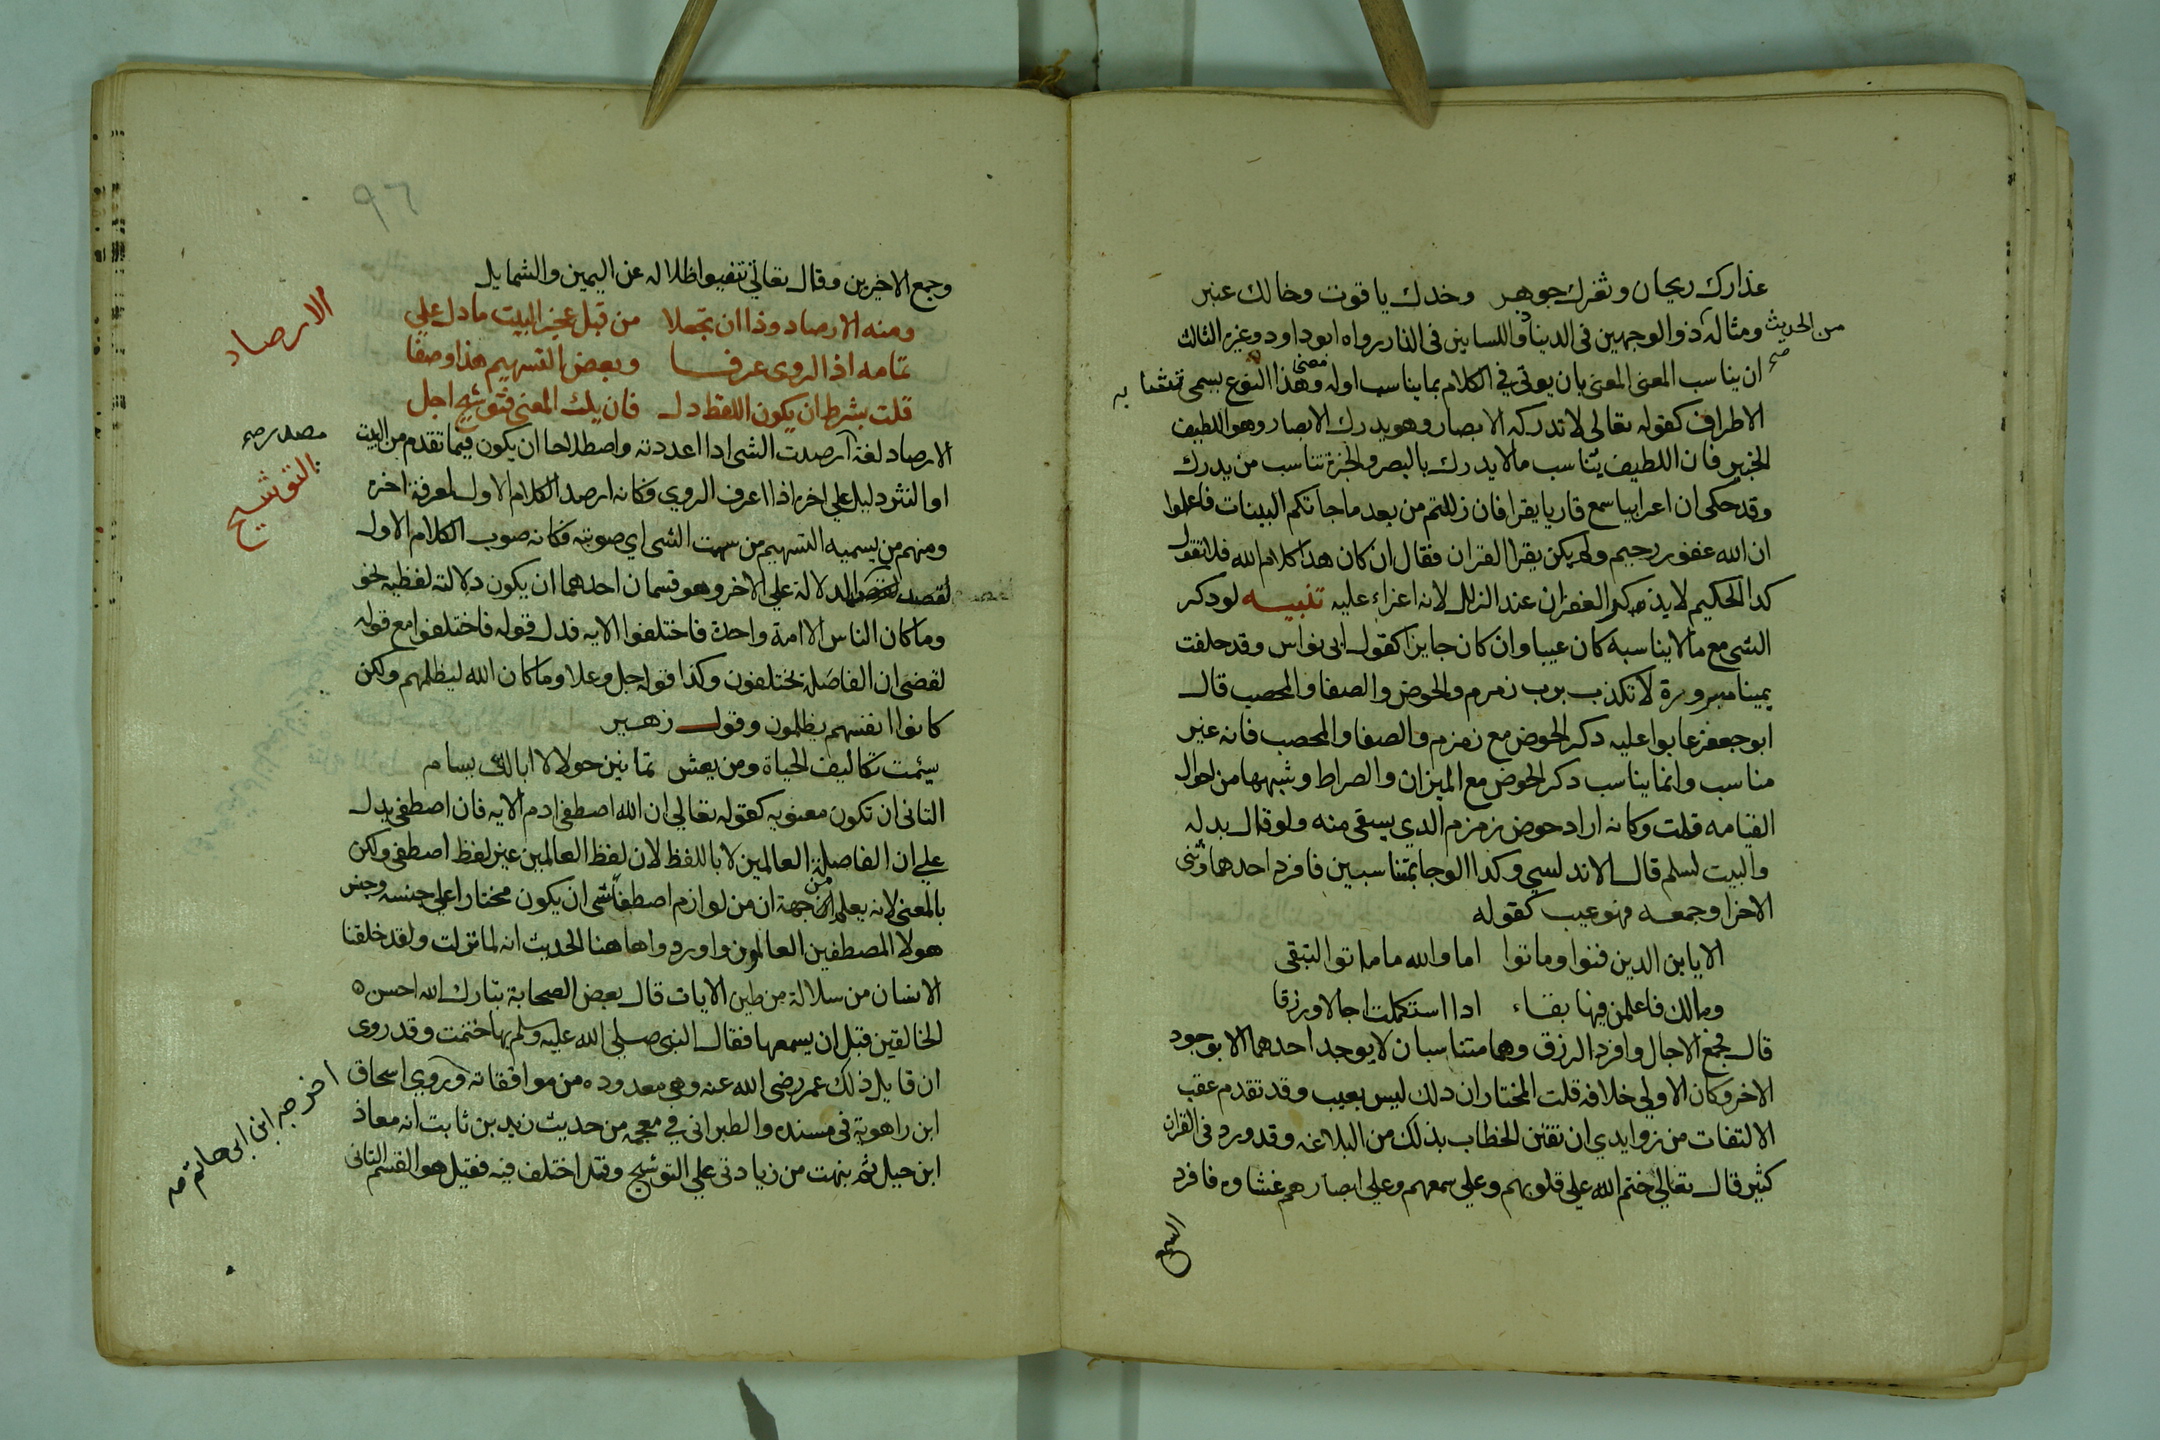 عذارك ريحان وثغرك جوهر وخدك ياقوت وخالك عنبر
من الحديث صح
ومثاله ذو الوجهين في الدنيا ذو اللسانين في النار رواه ابو داود وغيره الثالث
ان يناسب المعنى المعنى بان يوتي في الكلام بما يناسب اوله وهذا النوع يسمى تشابه
الاطراف كقوله تعالى لا تدركه الابصار وهو يدرك الابصار وهو اللطيف
الخبير فان اللطيف يناسب ما لا يدرك بالبصر والخبرة تناسب من يدرك
وقد حكي ان اعرابيا سمع قاريا يقرا فان زللتم من بعد ما جاتكم البينات فاعلموا
ان الله غفور رحيم ولم يكن يقرا القران فقال ان كان هذا كلام الله فلا تقول
كدا الحكيم لا يذكر الغفران عند الزلل لانه اغراء عليه تنبيه لو دكر
الشي مع ما لا يناسبه كان عيبا وان كان جايزا كقول ابي نواس وقد حلفت
يمينا مبرورة لا تكذب برب زمزم والحوض والصفا والمحصب قال
ابو جعفر عابوا عليه دكر الحوض مع زمزم والصفا والمحصب فانه غير
مناسب وانما يناسب دكر الحوض مع الميزان والصراط وشبهها من احوال
القيامه قلت وكانه اراد حوض زمزم الدي يسقى منه ولو قال بدله
والبيت لسلم قال الاندلسي وكدا لو جا بمتناسبين فافرد احدهما وثنى
الاخر او جمعه فهو عيب كقوله
الا يا بن الدين فنوا وماتوا اما والله ما ماتوا لتبقى
ومالك فاعلمن فيها بقاء ادا استكملت اجالا ورزقا
قال فجمع الاجال وافرد الرزق وهما متناسبان لا يوجد احدهما الا بوجود
الاخر وكان الاولي خلافه قلت المختار ان دلك ليس بعيب وقد تقدم عقب
الالتفات من زوايدي ان تفنن الخطاب بذلك من البلاغه وقد ورد في القران
كثير قال تعالى ختم الله علي قلوبهم وعلي سمعهم وعلي ابصارهم غشاوه فافرد
السمع
٩٦
وجمع الاخيرين وقال تعالي تتفيوا ظلاله عن اليمين والشمايل
الارصاد
ومنه الارصاد وذا ان تجعلا من قبل عجز البيت ما دل علي
تمامه اذا الروى عرفا وبعض التسهيم هذا وصفا
قلت بشرط ان يكون اللفظ دل فان يك المعنى فتوشيح اجل
مصدر صح
التوشيح
الارصاد لغة ارصدت الشي ادا اعددته واصطلاحا ان يكون فيما تقدم من البيت
او النثر دليل علي اخره اذا اعرف الروي فكانه ارصد الكلام الاول لمعرفة اخره
ومنهم من يسميه التسهيم من سهمت الشي اي صوبته فكانه صوب الكلام الاول
لقصد الدلالة علي الاخر وهو قسمان احدهما ان يكون دلالته لفظيه نحو
وما كان الناس الا امة واحدة فاختلفوا الايه فدل قوله فاختلفوا مع قوله
لقضي ان الفاصلة يختلفون وكذا قوله جل وعلا وما كان الله ليظلمهم ولكن
كانوا انفسهم يظلمون وقول زهير
سيمت تكاليف الحياة ومن يعش ثمانين حولا لا ابا لك يسام
الثاني ان تكون معنويه كقوله تعالي ان الله اصطفي ادم الايه فان اصطفي يدل
علي ان الفاصلة العالمين لا باللفظ لان لفظ العالمين غير لفظ اصطفي ولكن
بالمعنى لانه يعلم من جهة ان من لوازم اصطفا شي ان يكون مختارا علي جنسه وجنس
هولا المصطفين العالمون واوردوا هاهنا الحديث انه لما نزلت ولقد خلقنا
الانسان من سلالة من طين الايات قال بعض الصحابة تبارك الله احسن
الخالقين قبل ان يسمعها فقال النبي صلى الله عليه وسلم بها ختمت وقد روى
ان قايل ذلك عمر رضي الله عنه وهي معدوده من موافقاته وروي اسحاق
اخرجه ابن ابي حاتم
ابن راهوية في مسنده والطبراني في معجمه من حديث زيد بن ثابت انه معاذ
ابن جبل ثم نبهت من زيادتي علي التوشيح وقد اختلف فيه فقيل هو القسم الثاني